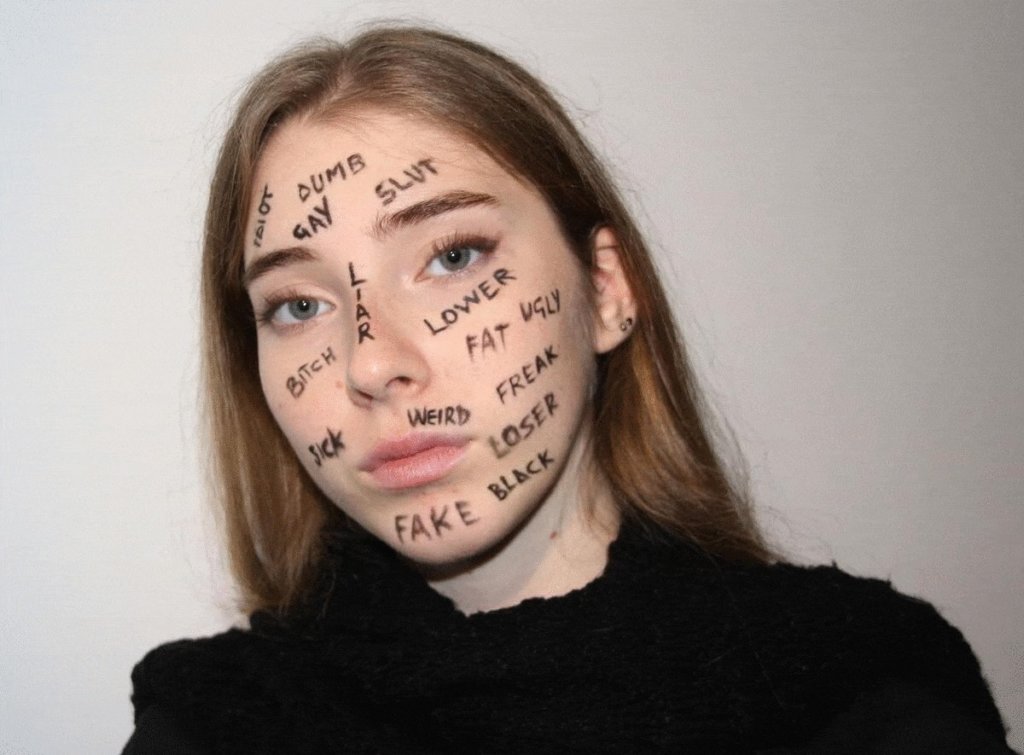 IDIOT
DUMB
SLUT
GAY
LIAR
LOWER
UGLY
FAT
BITCH
FREAK
WEIRD
LOSER
SICK
BLACK
FAKE